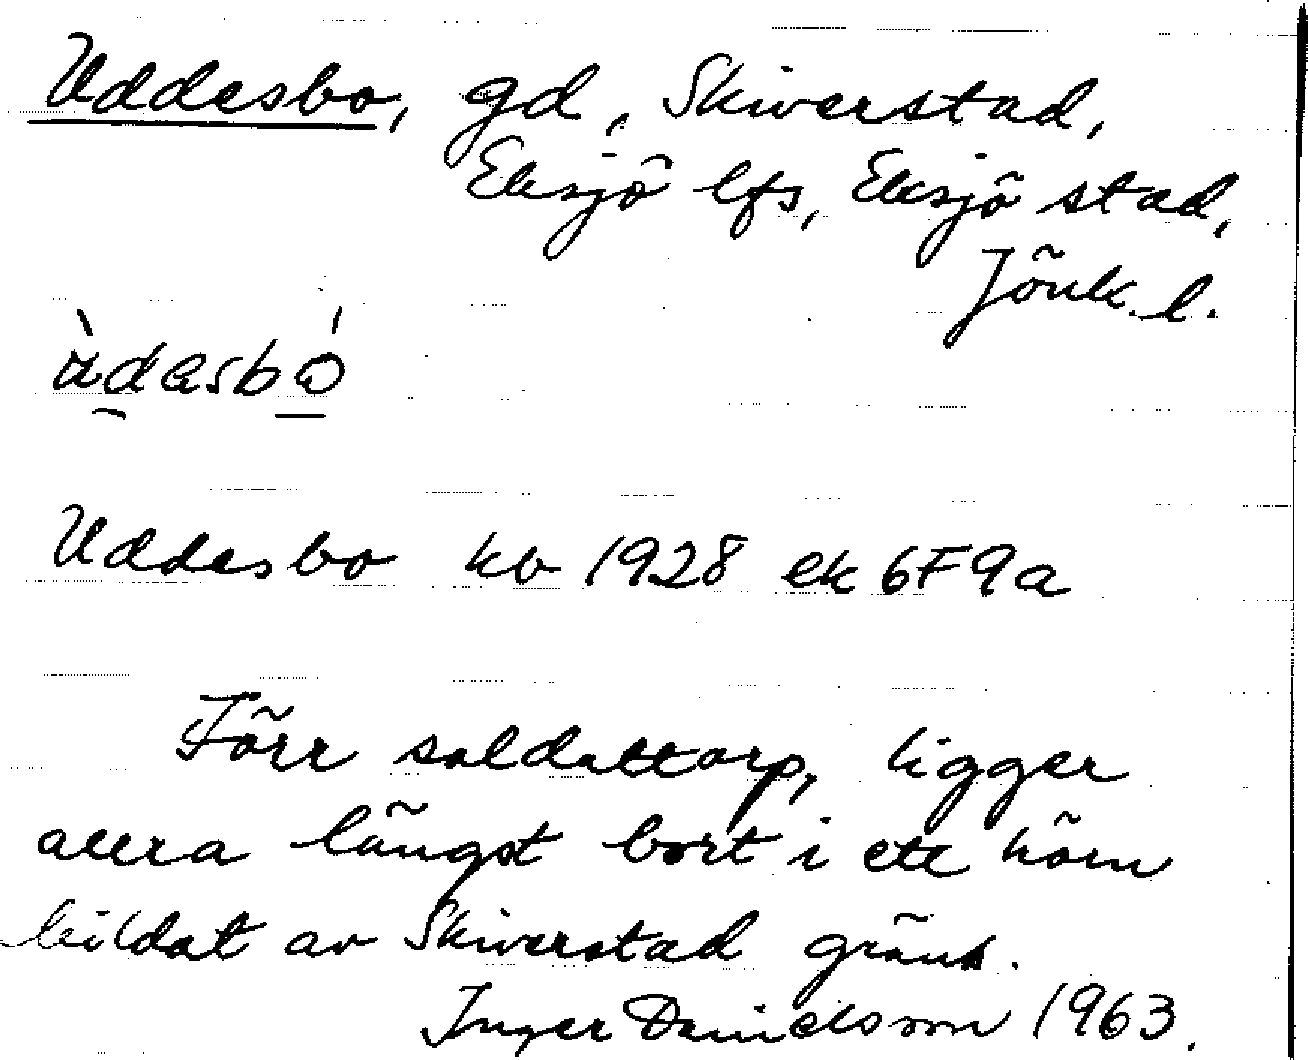 Uddesbo, gd, Skiverstad,
Eksjö lfs, Eksjö stad,
Jönk. l.
Uddesbo kb 1928 ek 6F9a
Förr soldattorp, ligger
allra längst bort i ett hörn
bildat av Skiverstad gräns.
Inger Danielsson 1963.